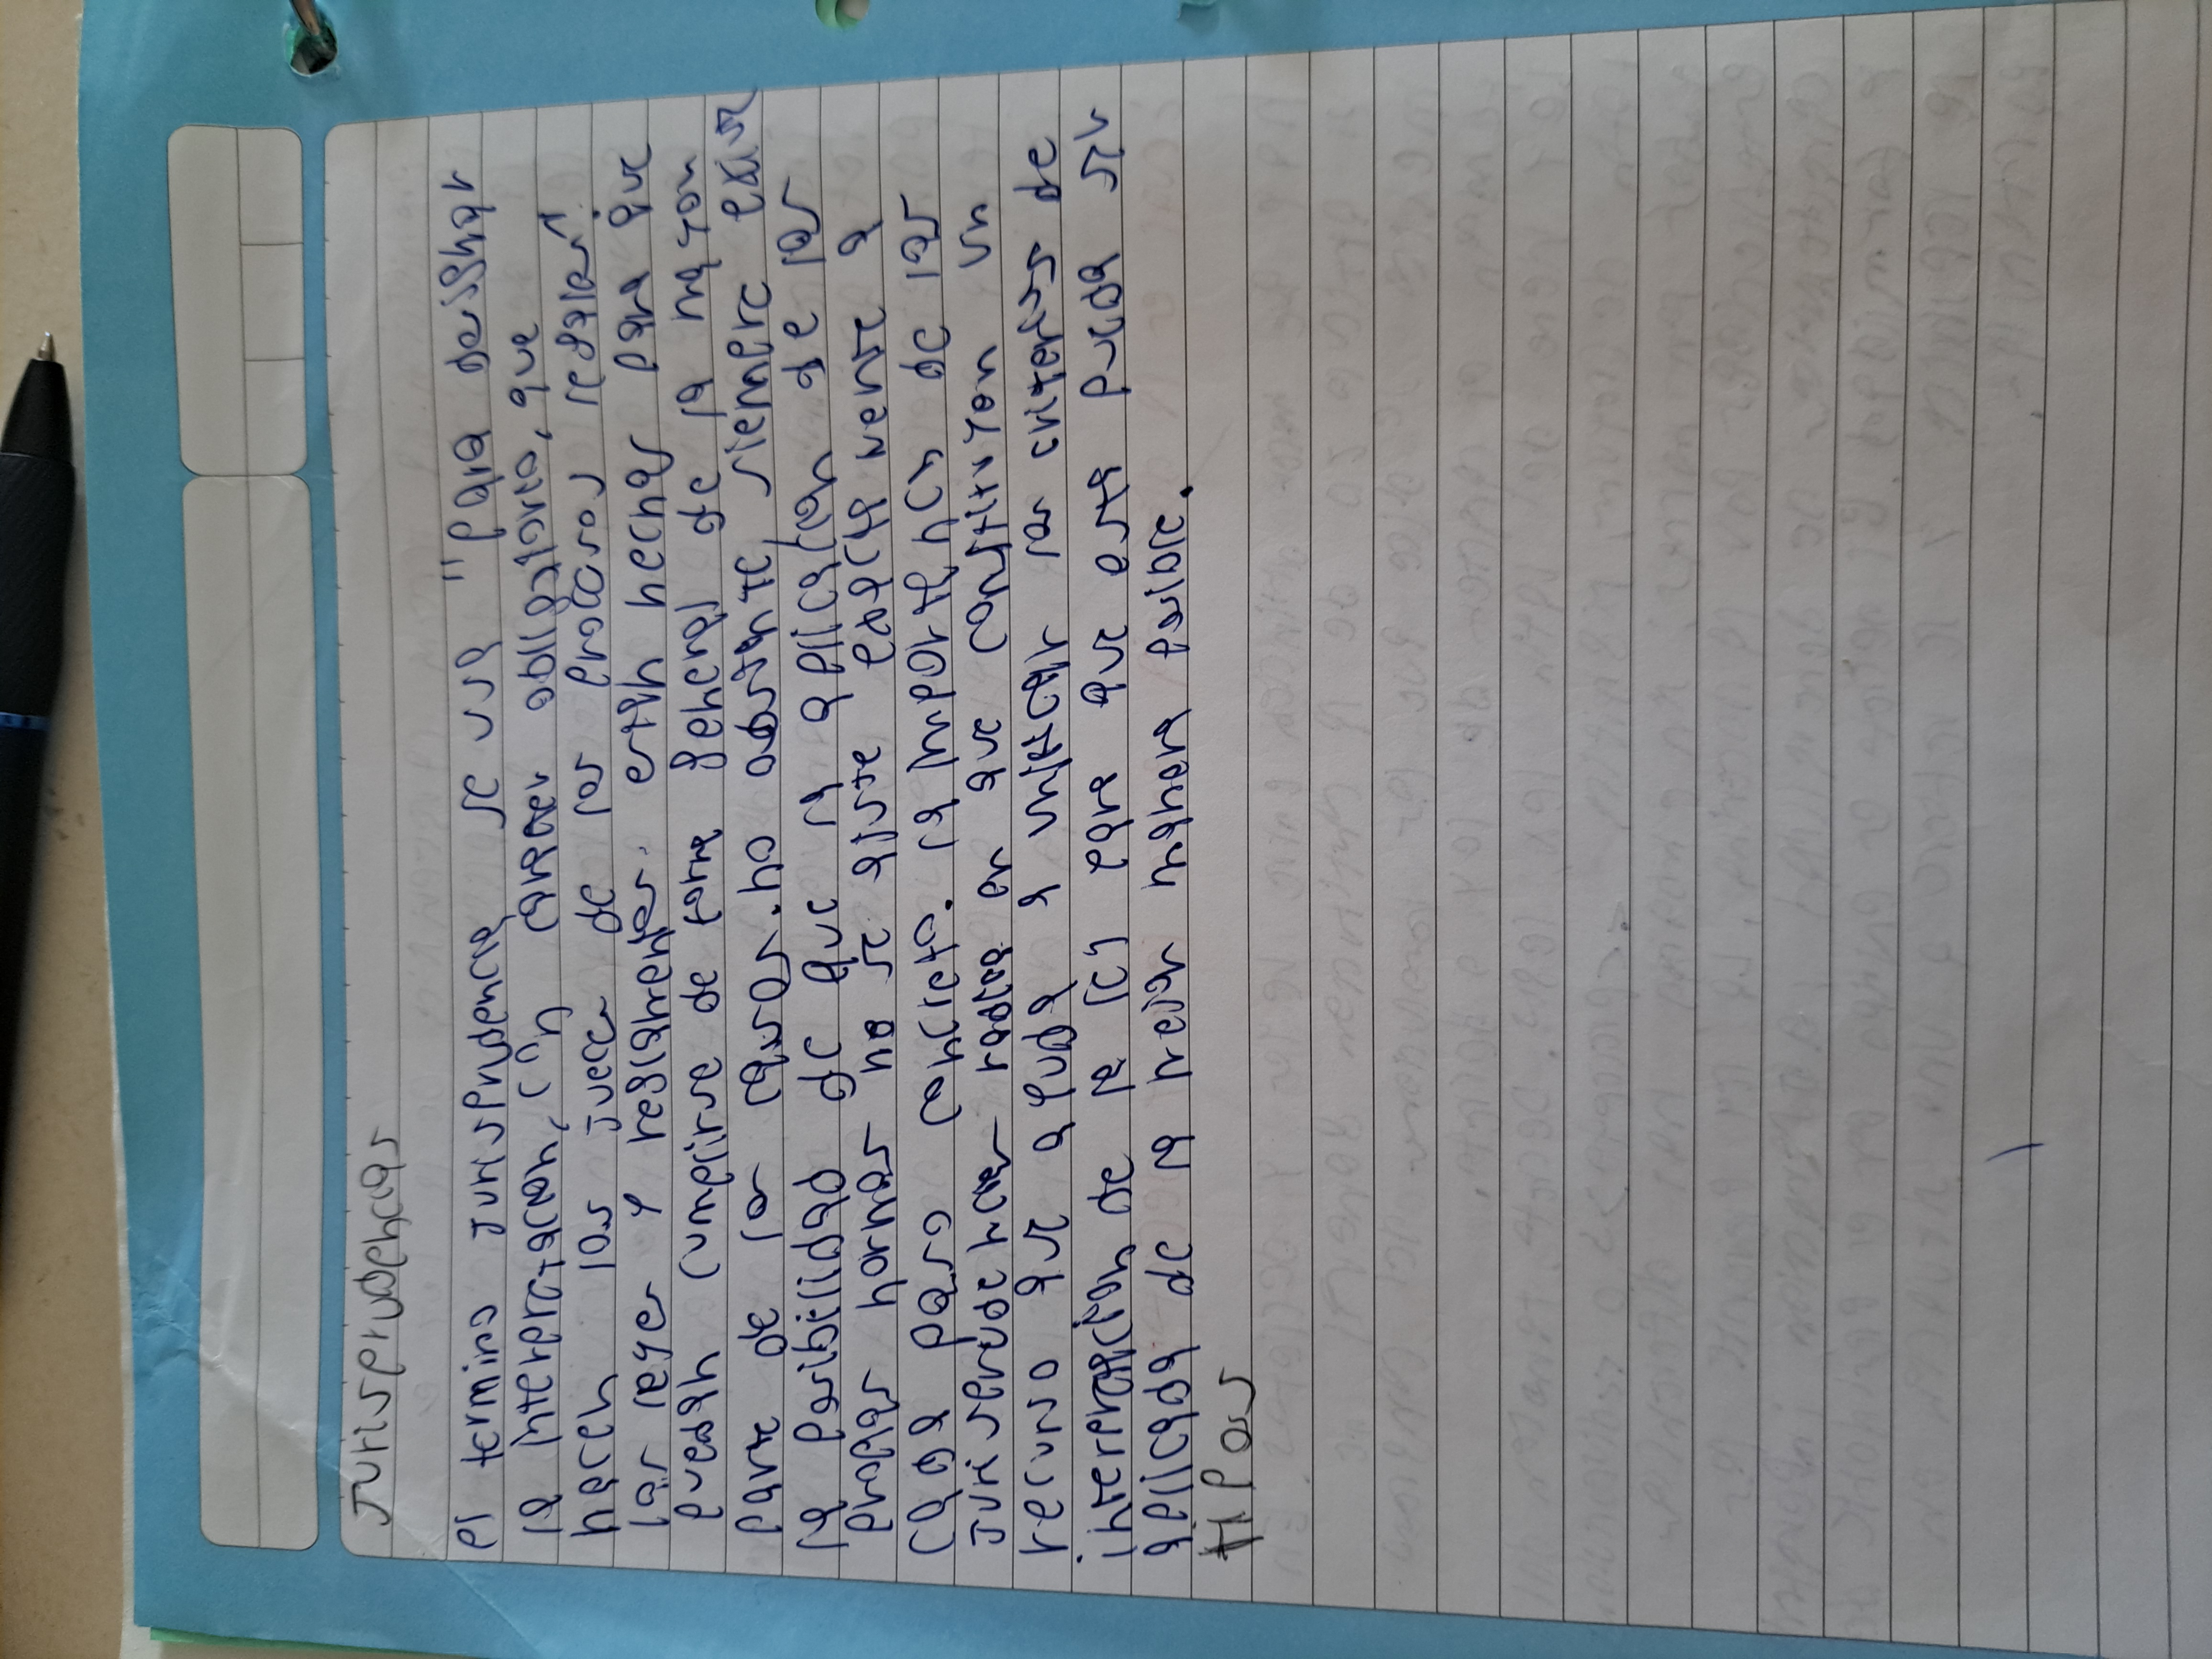 Jurisprudencias
el termino Jurisprudencia se usa para designar
la interpretacion, con caracter obligatorio, que
hacen los Jueces de los casos reales
las leyes y reglamentos. estan hechos para que
puedan cumplirse de forma general de la
de lo claros. No obstante siempre existe
la posibilidad de que la aplicacion de las
normas no se ajuste exactamente a
cada caso concreto. La importancia de las
Jurisprudencias radica en que constituyen un
recurso que ayuda a unificar los criterios de
interpretacion de la ley para que esta pueda ser
aplicada de la mejor manera posible.